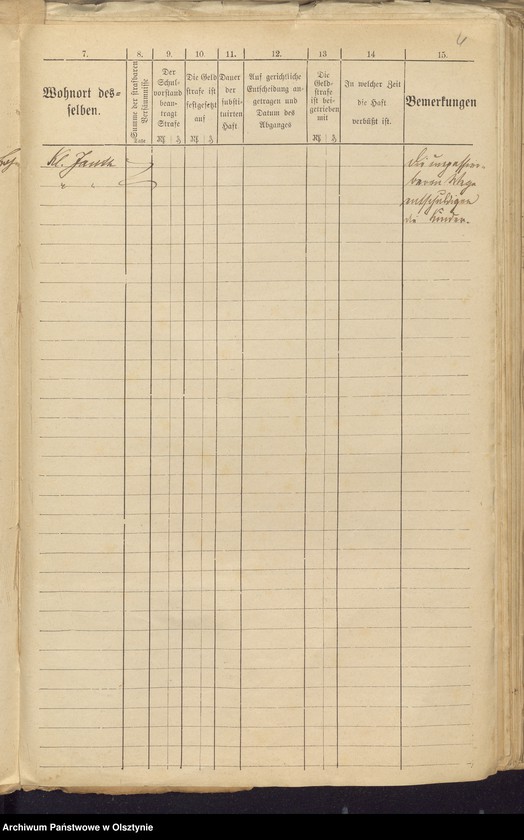 6
7.
8.
9.
10.
11.
12.
13
14
15.
Wohnort des-
selben.
Summe der strafbaren
Versäumnisse
Der
Schul-
vorstand
bean-
tragt
Strafe
Die Geld
strafe ist
festgesetzt
auf
Dauer
der
substi-
tuirten
Haft
Auf gerichtliche
Entscheidung an-
getragen und
Datum des
Abganges
Die
Geld-
strafe
ist bei-
getrieben
mit
In welcher Zeit
die Haft
verbüßt ist.
Bemerkungen
Kl.
" "
Die
Wege
entschuldigen
die Kinder.
Archiwum Państwowe w Olsztynie